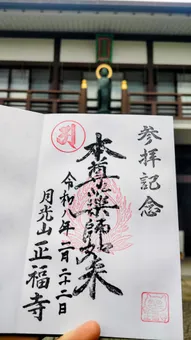 参拝記念
本尊薬師如来
令和八年二月二十二日
月光山正福寺